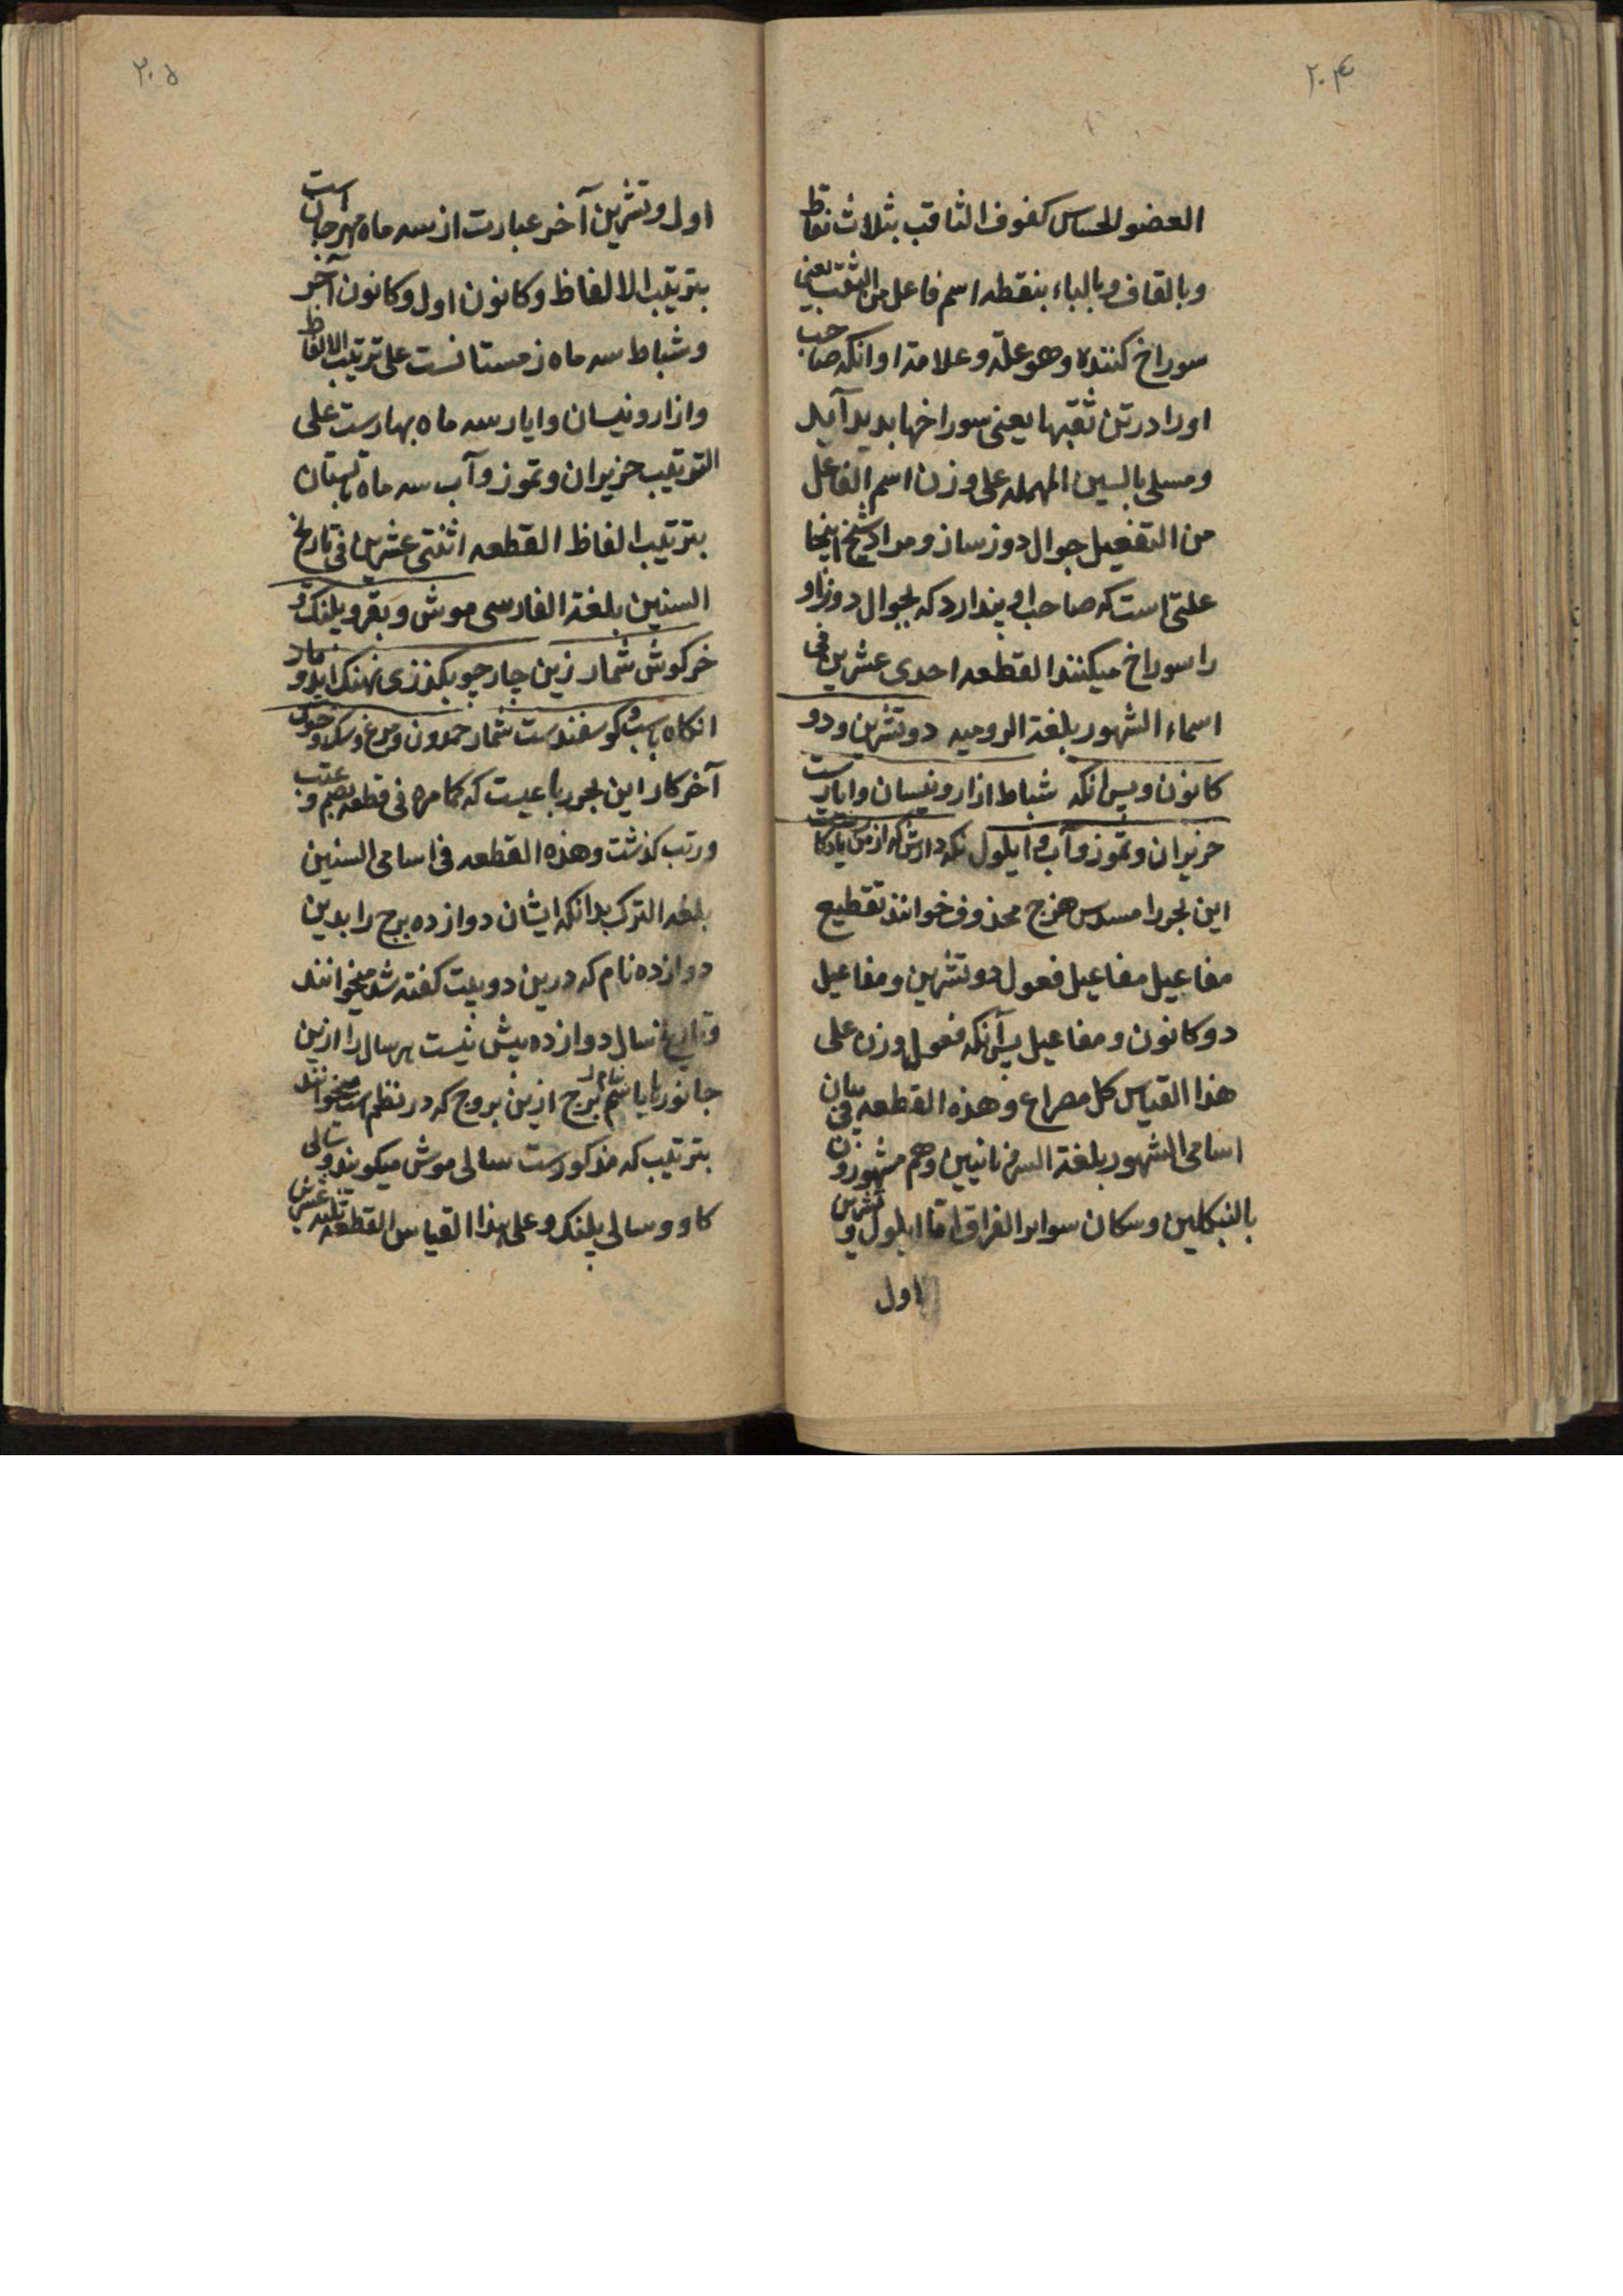 ۲۰۴
العضو الحساس كفوف الثاقب بثلاث نقاط
وبالقاف وبالباء بنقطه اسم فاعل من الثقب یعنی
سوراخ کننده وهو علة وعلامة او انکه صاحب
اورا در تن ثقبها یعنی سوراخها بدید آید
ومسلی بالسین المهمله علی وزن اسم الفاعل
من التفعیل جوال دوز ساز ومراد شیخ اینجا
علتی است که صاحب او پندارد که بجوال دوز او
را سوراخ میکنند القطعه احدی عشرین فی
اسماء الشهور بلغة الرومیه دو تشرین و دو
کانون و پس انکه شباط اذار ونیسان وایارست
حزیران وتموز وآب و ایلول نکه دارش که از من یادکارست
این بحر را مسدس هزج محذوف خوانند تقطیع
مفاعیل مفاعیل فعول دو تشرین و مفاعیل
دو کانون و مفاعیل پس آنکه فعول وزن علی
هذا القیاس کل مصراع وهذه القطعه فی بیان
اسامی الشهور بلغة السریانیین وهم مشهورون
بالنبکلین وسکان سواد العراق اما ایلول و تشرین
اول
۲۰۵
اول و تشرین آخر عبارت از سه ماه مهرجان است
بترتیب الالفاظ وکانون اول وکانون آخر
وشباط سه ماه زمستانست علی ترتیب الالفاظ
واذار ونیسان وایار سه ماه بهارست علی
الترتیب حزیران وتموز وآب سه ماه تابستان
بترتیب الفاظ القطعه اثنتی عشرین فی تاریخ
السنین بلغة الفارسی موش و بقر و پلنک و
خرکوش شمار زین چار چو بکذری نهنک اید و مار
انکاه باسب و کوسفندست شمار حمدون و مرغ و سک و خوک
آخر کار این بحر رباعیست که کما مر فی قطعه بضم و عتب
ورتب کذشت وهذه القطعه فی اسامی السنین
بلغه الترک بدانکه ایشان دوازده برج را بدین
دوازده نام که درین دو بیت کفته شد میخوانند
وتاریخ سال دوازده بیش نیست هر سال را ازین
جانورها باسم برج ازین بروج که در نظم است میخوانند
بترتیب که مذکورست سالی موش میکویند و سالی
کاو و سالی پلنک وعلی هذا القیاس القطعه ثلثه عشرین